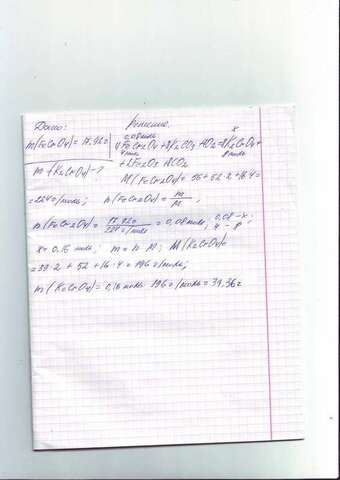 Дано: Решение.
0,08 моль x
m(FeCr2O4) = 17,92г 4FeCr2O4 + 8K2CO3 + 7O2 = 8K2CrO4 +
4 моль 8 моль
m(K2CrO4) - ? + 2Fe2O3 + 8CO2
M(FeCr2O4) = 56 + 52·2 + 16·4 =
= 224 г/моль; n(FeCr2O4) = m/M;
n(FeCr2O4) = 17,92г / 224 г/моль = 0,08 моль; 0,08 - x; 4 - 8
x = 0,16 моль; m = n·M; M(K2CrO4) =
= 39·2 + 52 + 16·4 = 194 г/моль;
m(K2CrO4) = 0,16 моль · 196 г/моль = 31,36г